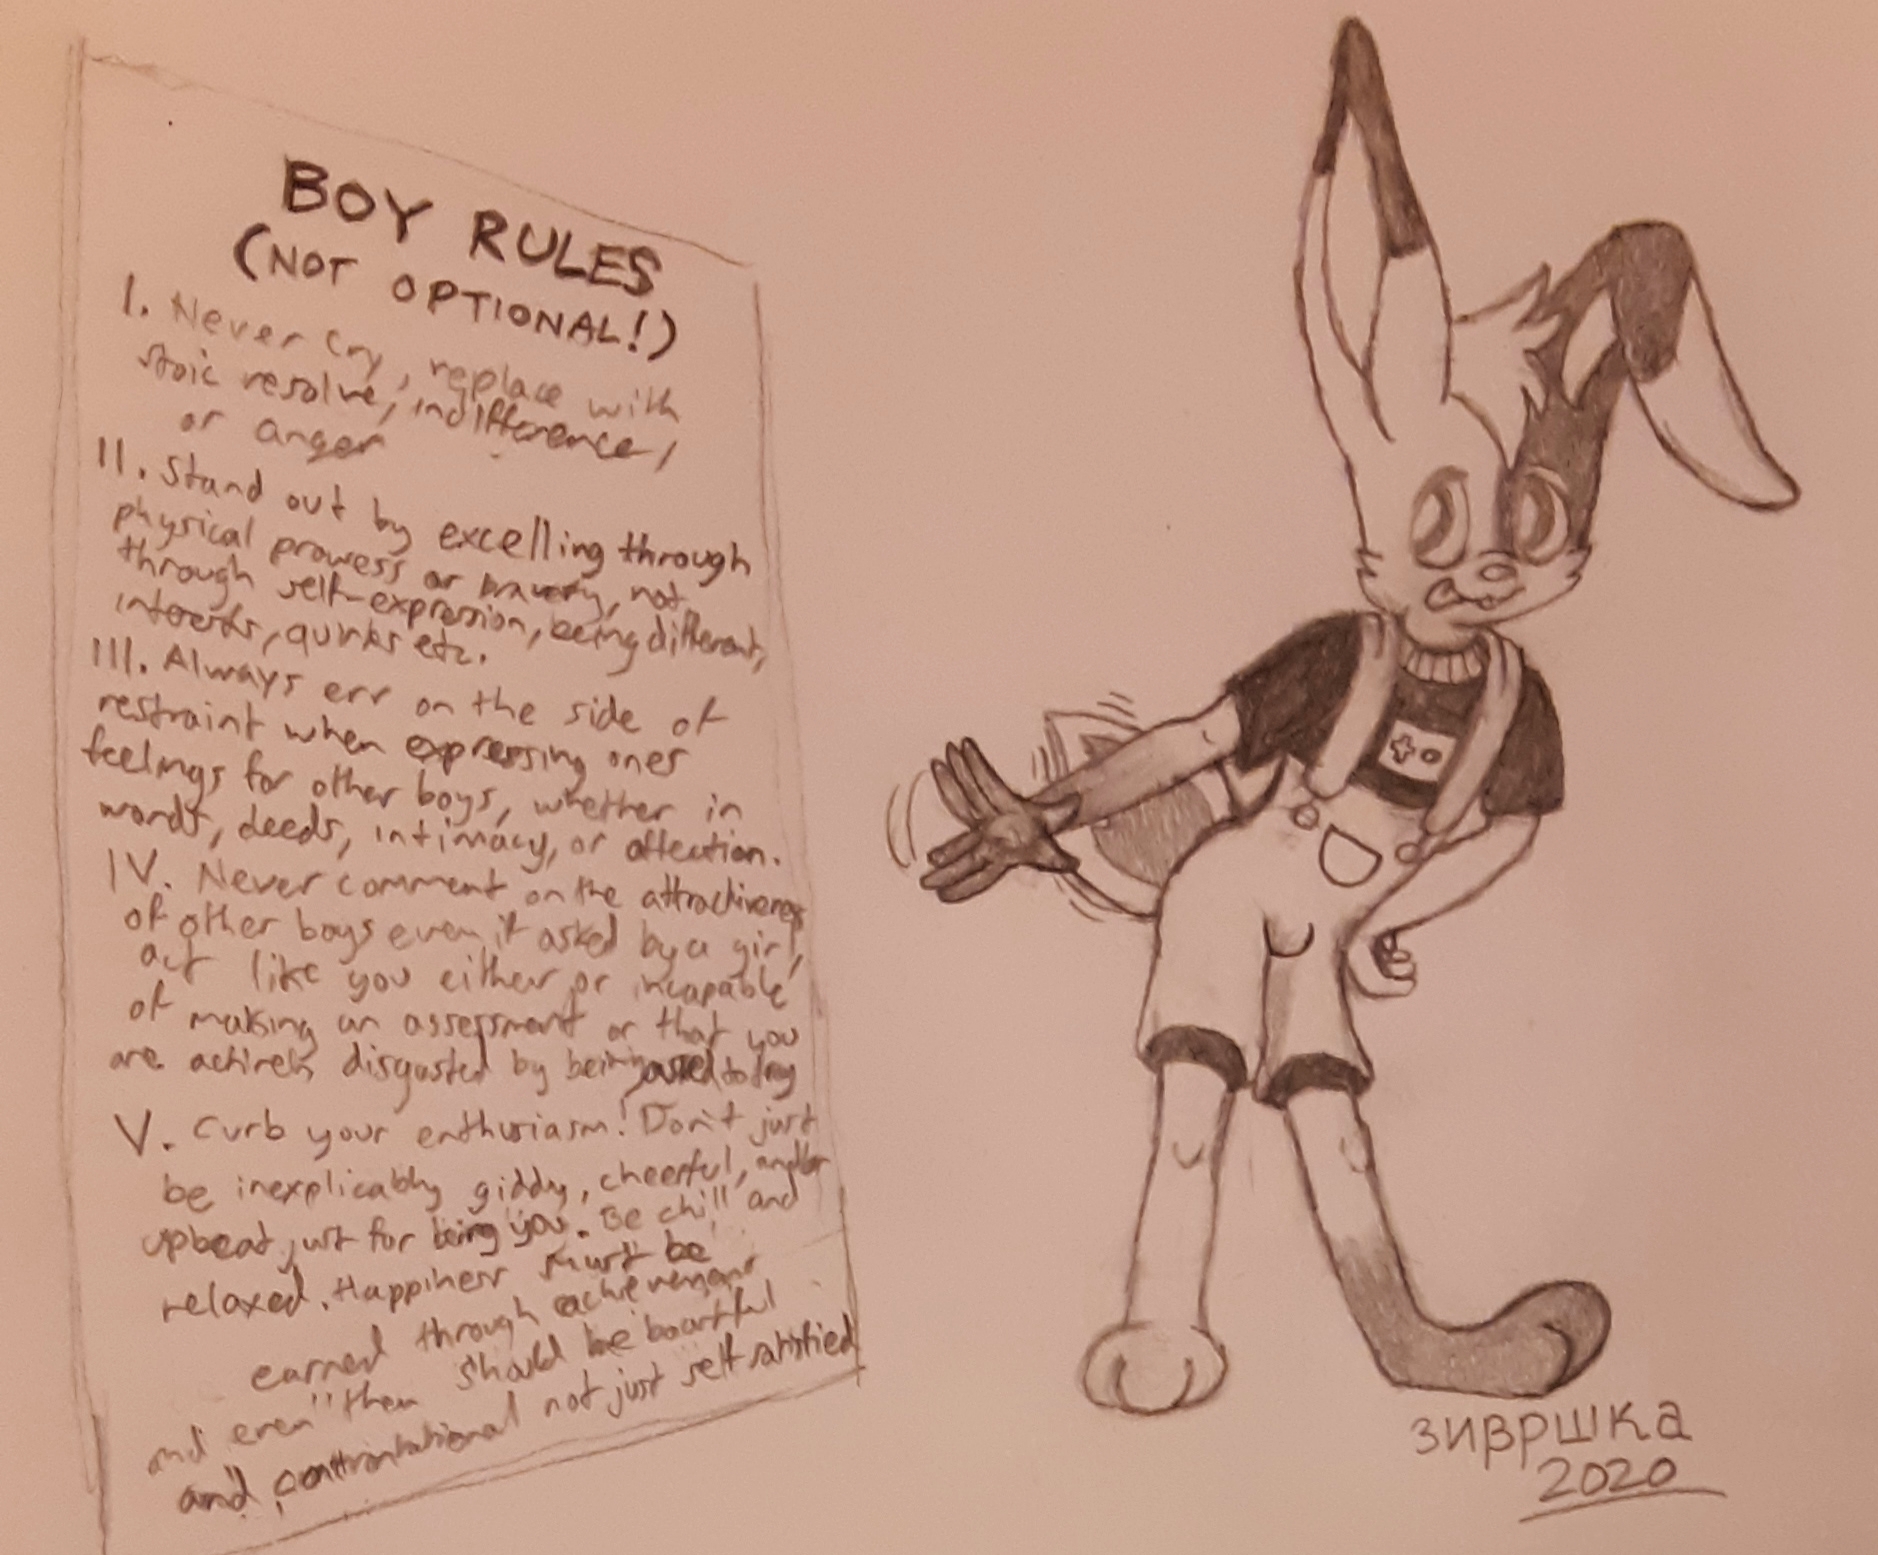 BOY RULES
(NOT OPTIONAL!)
I. Never cry, replace with
stoic resolve, indifference,
or anger
II. Stand out by excelling through
physical prowess or bravery, not
through self-expression, being different,
interests, quirks etc.
III. Always err on the side of
restraint when expressing ones
feelings for other boys, whether in
words, deeds, intimacy, or affection.
IV. Never comment on the attractiveness
of other boys even if asked by a girl,
act like you either or incapable
of making an assessment or that you
are actively disgusted by being asked to
V. Curb your enthusiasm! Don't just
be inexplicably giddy, cheerful, and/or
upbeat just for being you. Be chill and
relaxed. Happiness must be
earned through achievement
and even then should be boastful
and confrontational not just self satisfied
зивршка
2020